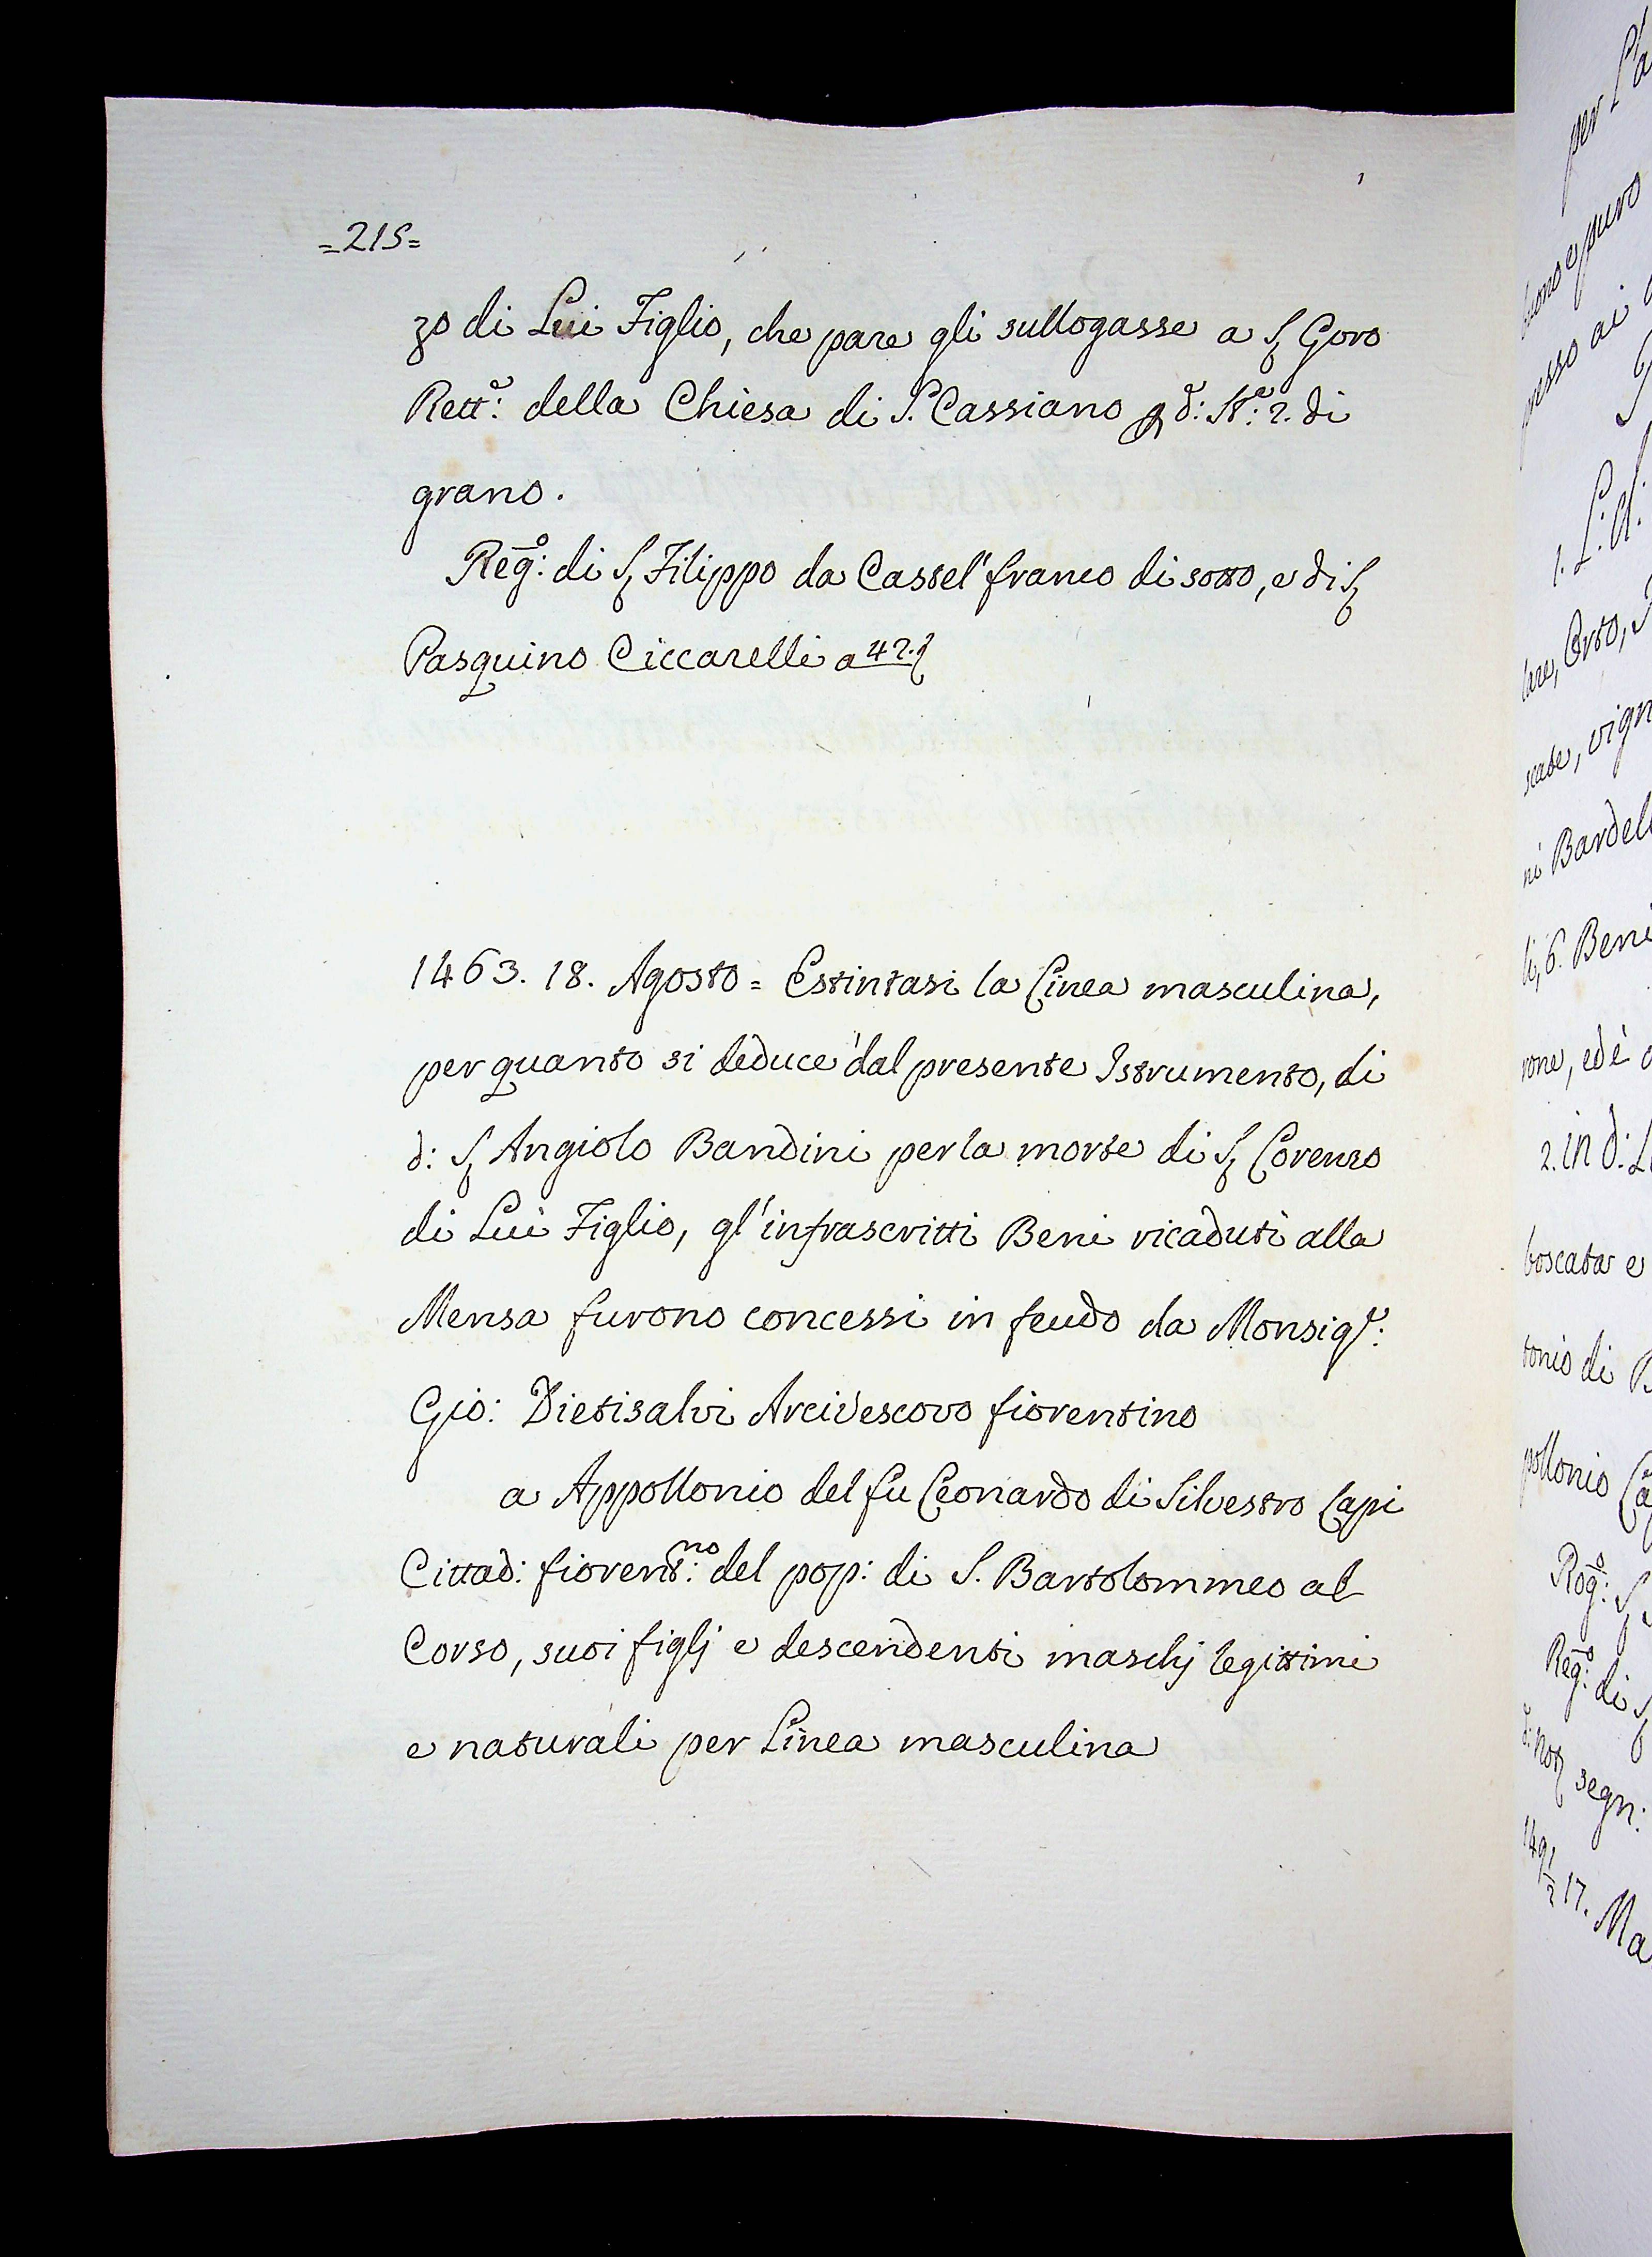 =215=
zo di Lui Figlio, che pare gli sullogasse a S Goro
Rett.e: della Chiesa di S. Cassiano p d: St.e: 2. di
grano.
Reg.o: di S Filippo da Castel'franco di sotto, e di S
Pasquino Ciccarelli a 42.
1463. 18. Agosto = Estintasi la Linea masculina,
per quanto si deduce dal presente Istrumento, di
d: S Angiolo Bandini per la morte di S Lorenzo
di Lui Figlio, gl'infrascritti Beni ricaduti alla
Mensa furono concessi in feudo da Monsig.r:
Gio: Dietisalvi Arcivescovo fiorentino
a Appollonio del fu Leonardo di Silvestro Lapi
Cittad: fiorent.no: del pop: di S. Bartolommeo al
Corso, suoi figlj e descendenti maschj legittimi
e naturali per Linea masculina
per
buono e puro
presso ai
1. L: d:
lare, Orto,
scate, vign
ni Bardel
li, 6. Beni
rone, ed è
2. in d: L
boscata e
tonio di B
pollonio
Rog.o: S
Reg.o: di S
segn:
17. Ma